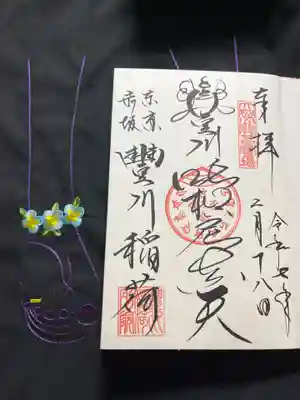 奉拝
令和七年
二月十八日
豊川吒枳尼真天
東京
赤坂
豐川稲荷